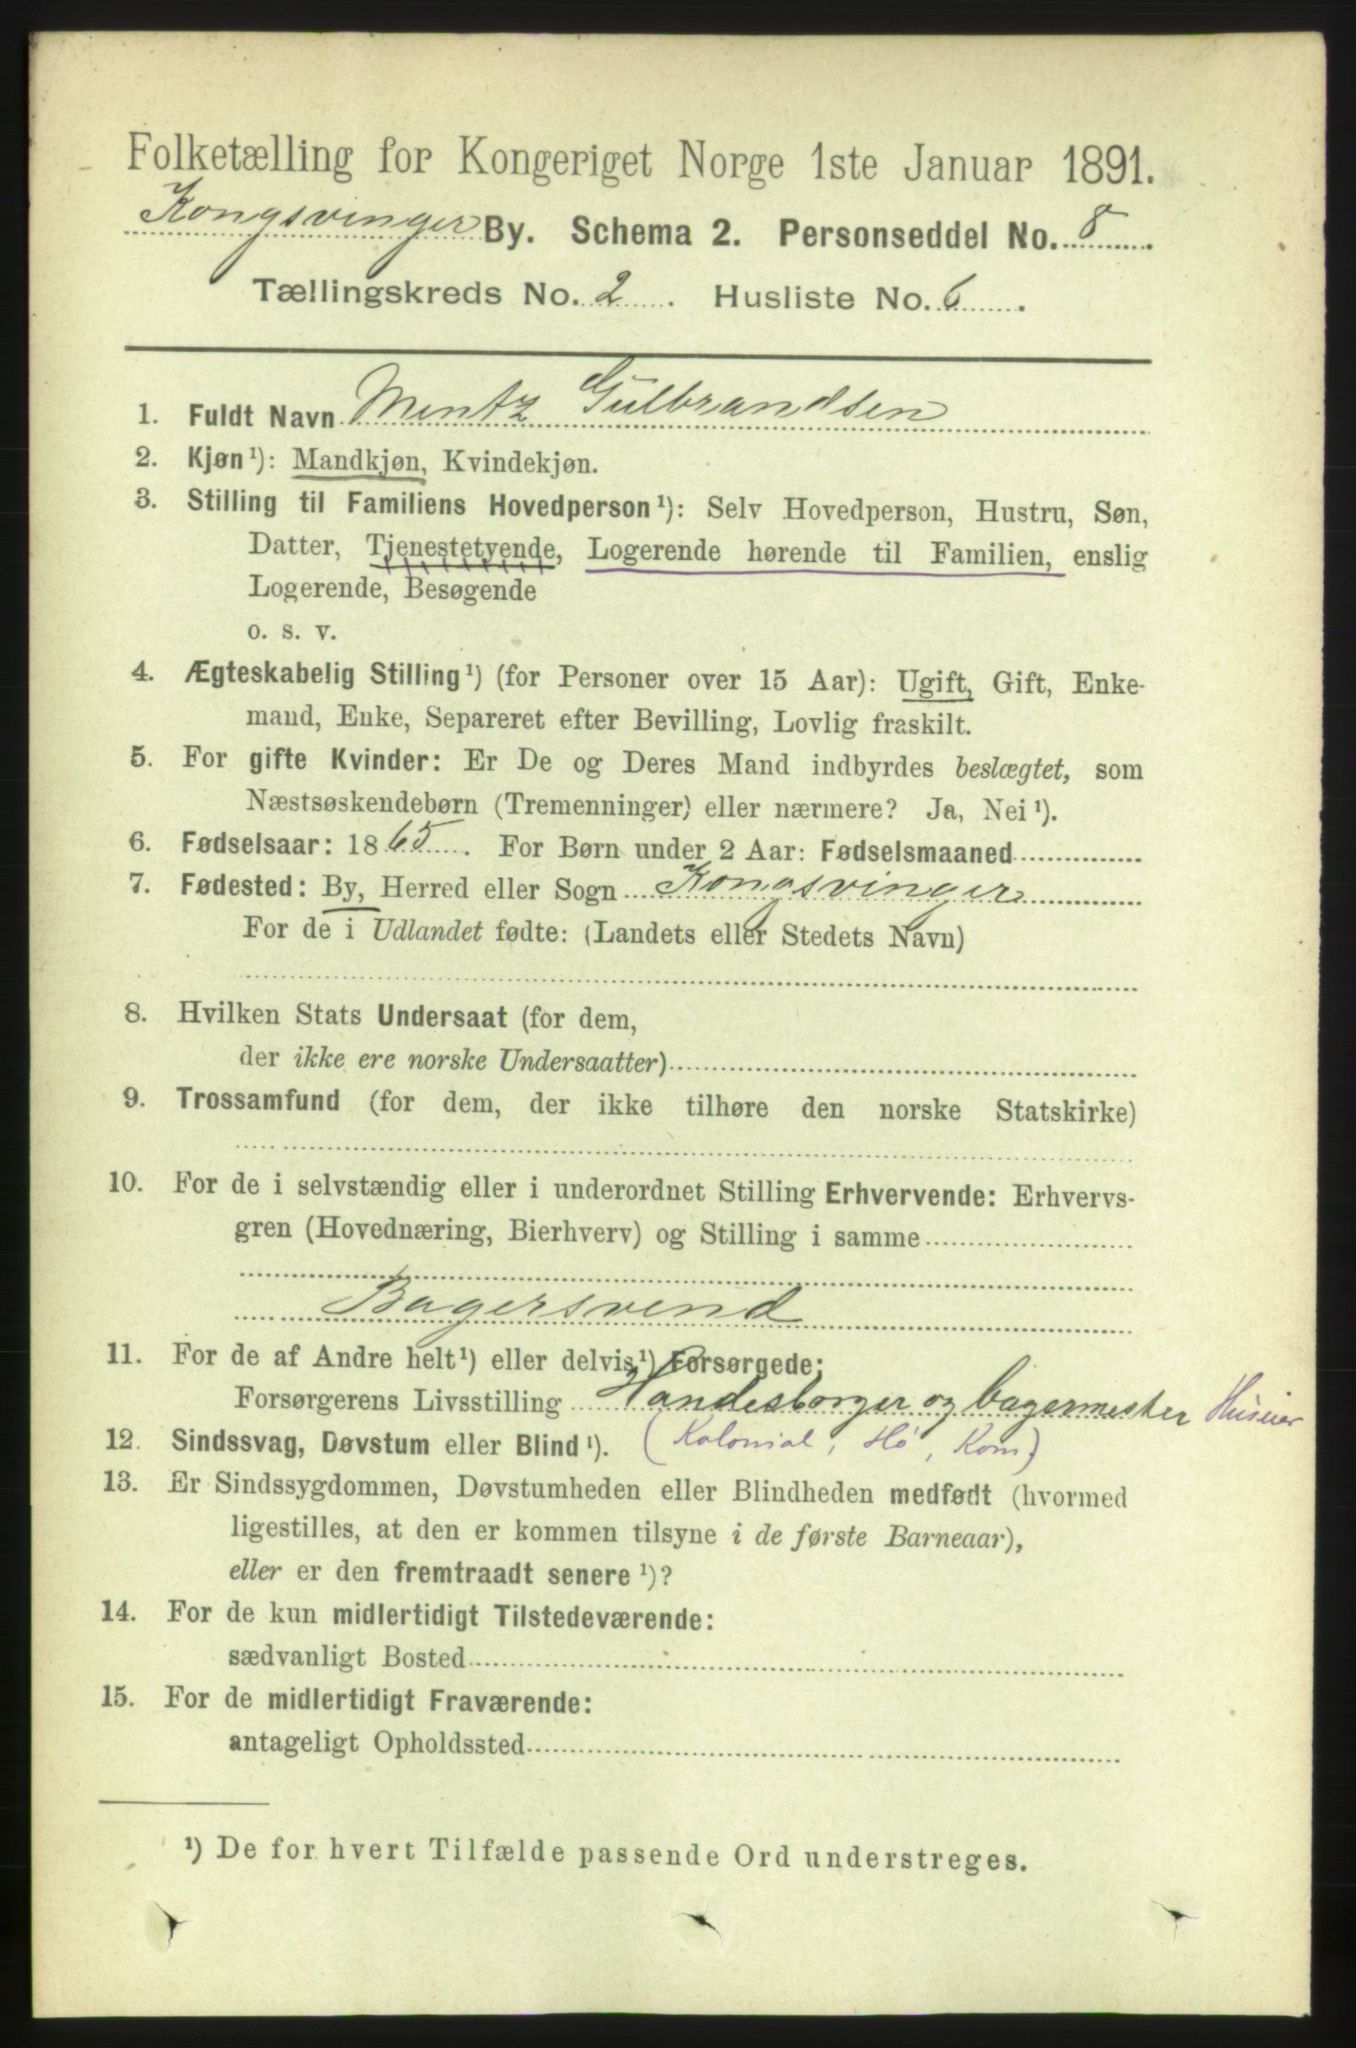 Folketælling for Kongeriget Norge 1ste Januar 1891.
Kongsvinger By. Schema 2. Personseddel No. 8.
Tællingskreds No. 2. Husliste No. 6.
1. Fuldt Navn Mentz Gulbrandsen
2. Kjøn¹): Mandkjøn, Kvindekjøn.
3. Stilling til Familiens Hovedperson¹): Selv Hovedperson, Hustru, Søn,
Datter, Tjenestetyende, Logerende hørende til Familien, enslig
Logerende, Besøgende
o. s. v.
4. Ægteskabelig Stilling¹) (for Personer over 15 Aar): Ugift, Gift, Enke-
mand, Enke, Separeret efter Bevilling, Lovlig fraskilt.
5. For gifte Kvinder: Er De og Deres Mand indbyrdes beslægtet, som
Næstsøskendebørn (Tremenninger) eller nærmere? Ja, Nei¹).
6. Fødselsaar: 1865. For Børn under 2 Aar: Fødselsmaaned
7. Fødested: By, Herred eller Sogn Kongsvinger
For de i Udlandet fødte: (Landets eller Stedets Navn)
8. Hvilken Stats Undersaat (for dem,
der ikke ere norske Undersaatter)
9. Trossamfund (for dem, der ikke tilhøre den norske Statskirke)
10. For de i selvstændig eller i underordnet Stilling Erhvervende: Erhvervs-
gren (Hovednæring, Bierhverv) og Stilling i samme
Bagersvend
11. For de af Andre helt¹) eller delvis¹) Forsørgede:
Forsørgerens Livsstilling Handesborger og bagermester
12. Sindssvag, Døvstum eller Blind¹). (Kolonial, Hø, Korn)
13. Er Sindssygdommen, Døvstumheden eller Blindheden medfødt (hvormed
ligestilles, at den er kommen tilsyne i de første Barneaar),
eller er den fremtraadt senere¹)?
14. For de kun midlertidigt Tilstedeværende:
sædvanligt Bosted
15. For de midlertidigt Fraværende:
antageligt Opholdssted
¹) De for hvert Tilfælde passende Ord understreges.